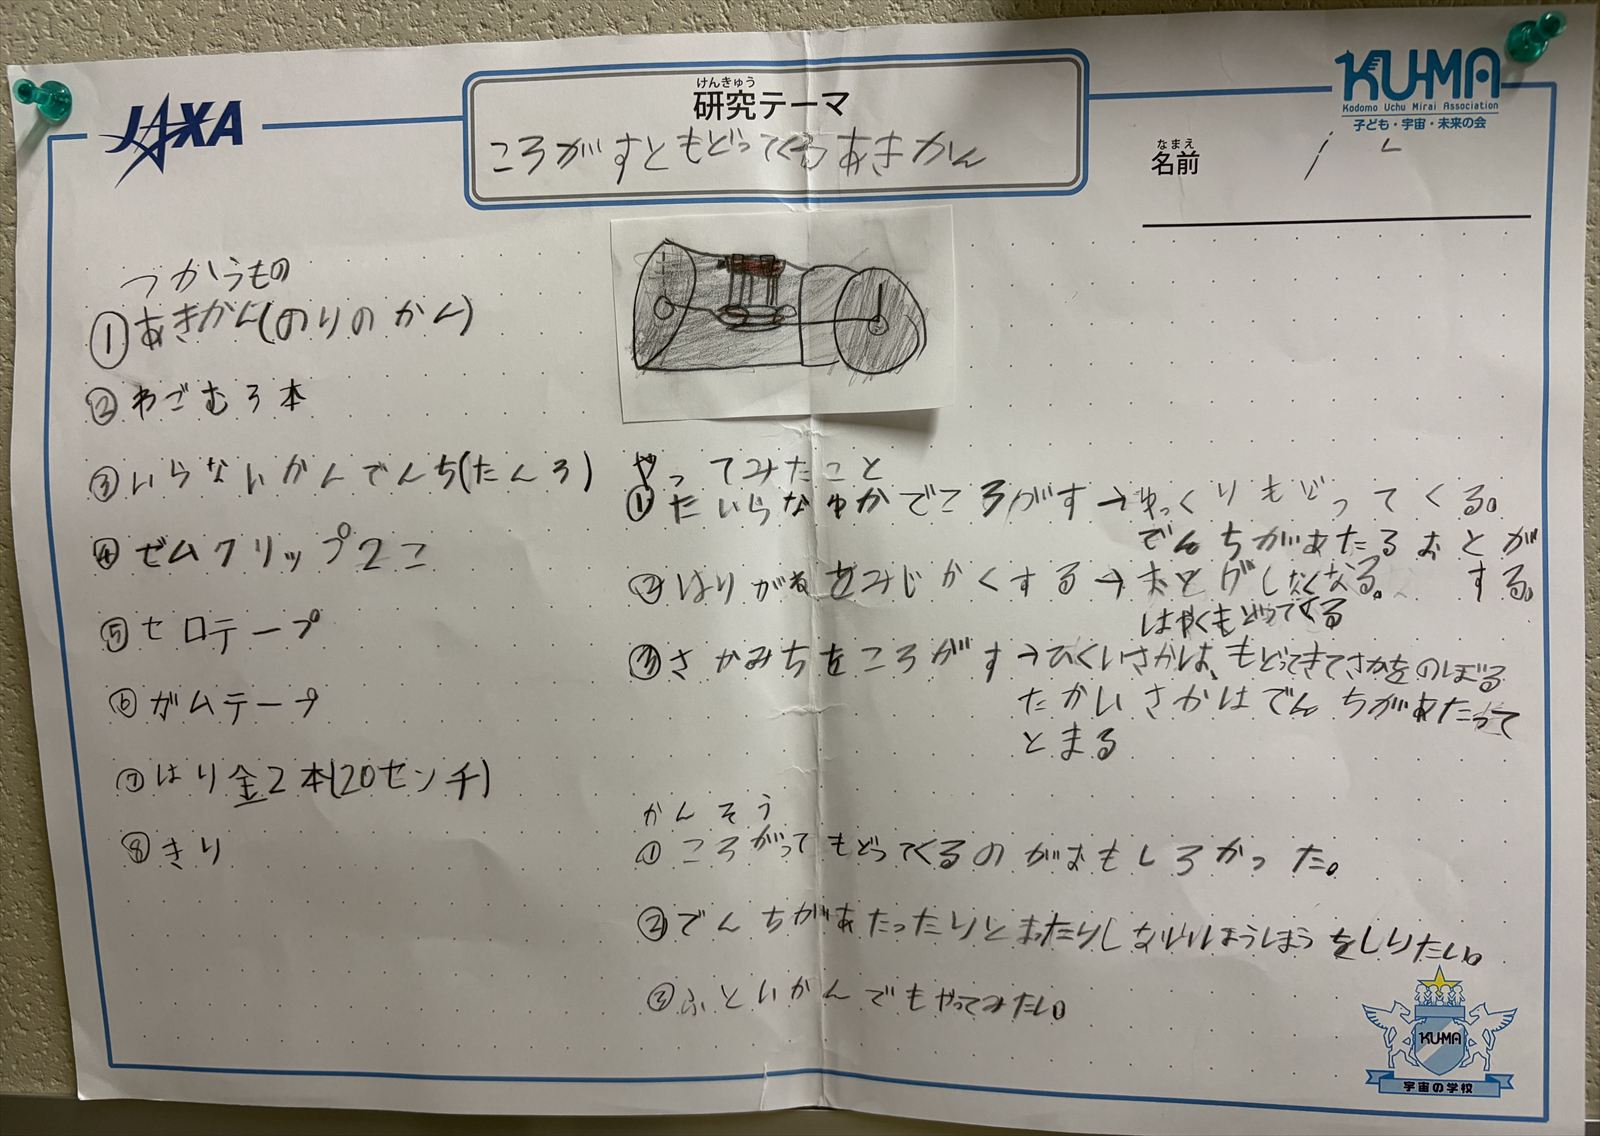 JAXA
けんきゅう
研究テーマ
ころがすともどってくるあきかん
KUMA
Kodomo Uchu Mirai Association
子ども・宇宙・未来の会
なまえ
名前
つかうもの
①あきかん(のりのかん)
②わごむ3本
③いらないかんでんち(たん3)
④ゼムクリップ2こ
⑤セロテープ
⑥ガムテープ
⑦はり金2本(20センチ)
⑧きり
やってみたこと
①たいらなゆかでころがす→ゆっくりもどってくる。
でんちがあたるおとが
する。
②はりがねをみじかくする→おとがしなくなる。
はやくもどってくる
③さかみちをころがす→ひくいさかは、もどってきてさかをのぼる
たかいさかはでんちがあたって
とまる
かんそう
①ころがってもどってくるのがおもしろかった。
②でんちがあたったりとまったりしないほうほうをしりたい。
③ふといかんでもやってみたい。
KUMA
宇宙の学校